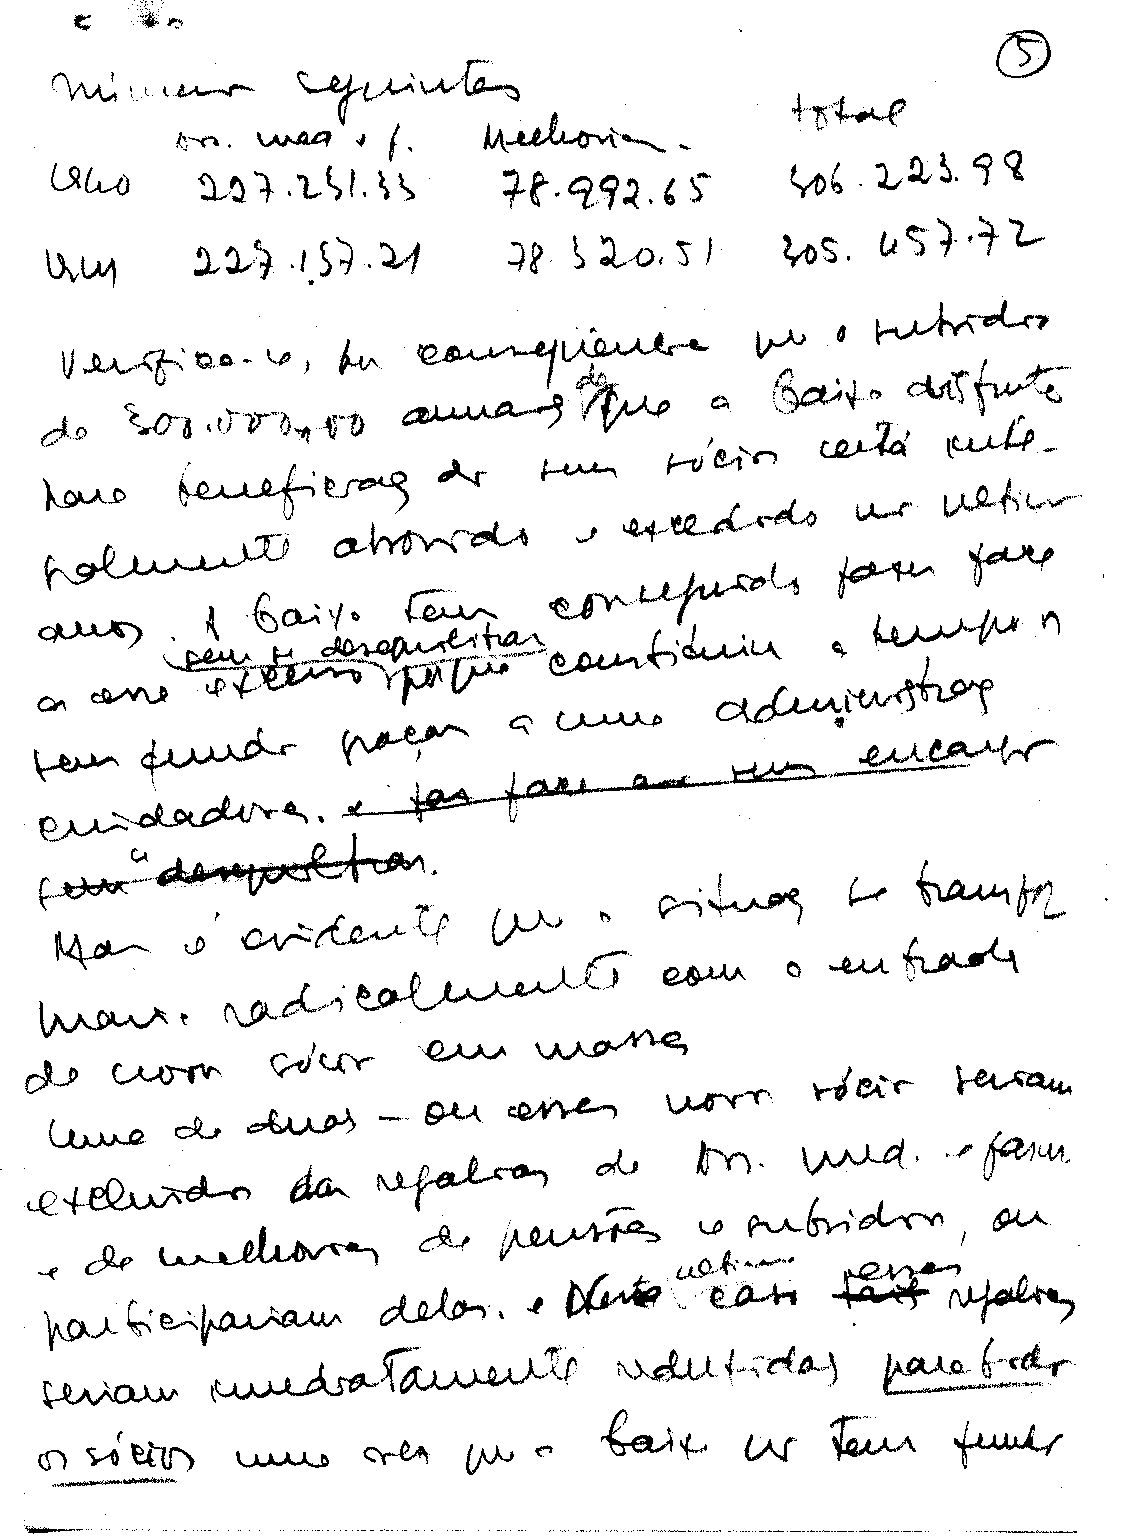 5
números seguintes
ass. med. e f. Melhorias. total
1940 227.231.33 78.992.65 306.223.98
1941 227.137.21 78.320.51 305.457.72
Verifica-se, por consequência que o subsídio
de 300.000,00 anuais de que a Caixa disfruta
para beneficiação dos seus sócios está inte-
gralmente absorvido e excedido nos ultimos
anos. A Caixa tem conseguido fazer face
sem se desequilibrar
a esse excesso porque constituiu a tempo os
seus fundos graças a uma administração
cuidadosa. e faz face aos seus encargos
sem desequilibrar.
Mas é evidente que a situação se transfor
maria radicalmente com a entrada
de novos sócios em massa
Uma de duas – ou esses novos sócios seriam
excluidos das regalias de Ass. med. e farm.
e de melhorias de pensões e subsidios, ou
participariam delas. e Neste ultimo caso essas regalias
seriam imediatamente reduzidas para todos
os sócios uma vez que a Caixa não tem fundos